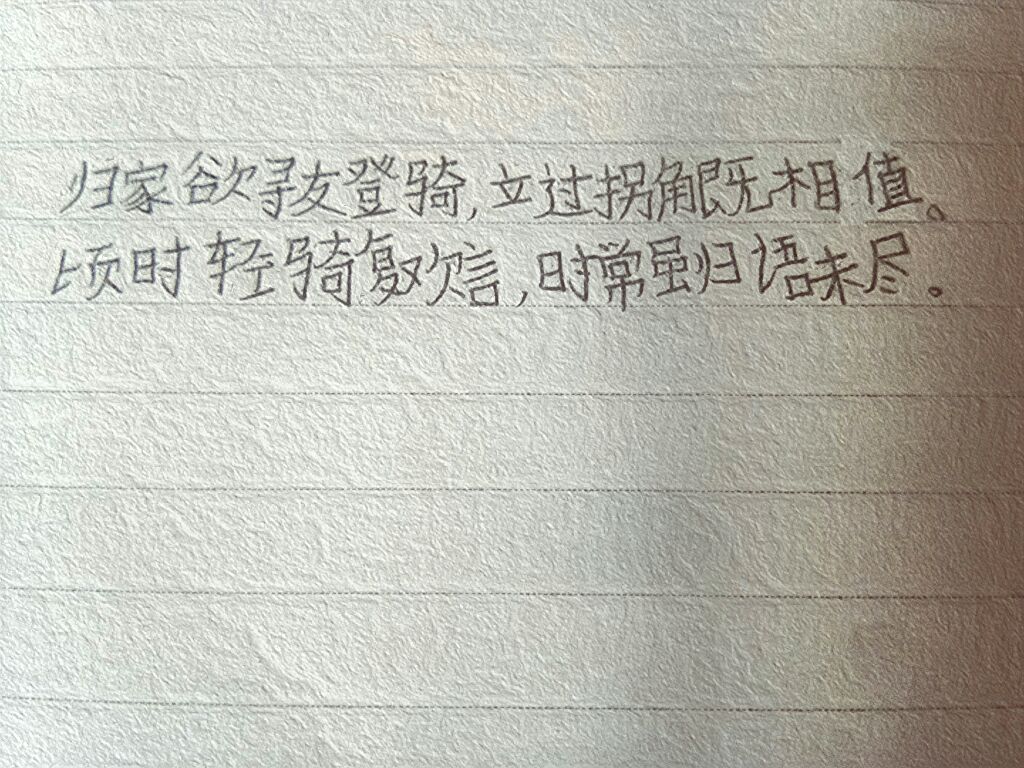 归家欲寻友登骑,立过拐角既相值。
顷时轻骑复欢言,时常虽归语未尽。